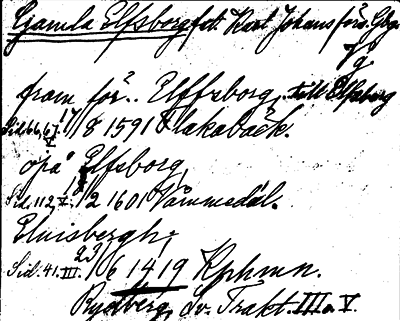 Gamla Elfsborgs fst. Karl Johans förs. Gbg.
fram för.. Elffzborg, till Elfsborg
Sid. 66, 67. V. 17/8 1591 Slakabäck.
opå Elfsborg,
Sid. 112, V. 8/2 1601 Vämmedal.
Eluisbergh;
Sid. 41. III. 23/6 1419 Kphmn.
Rydberg, Sv. Trakt. III o V.